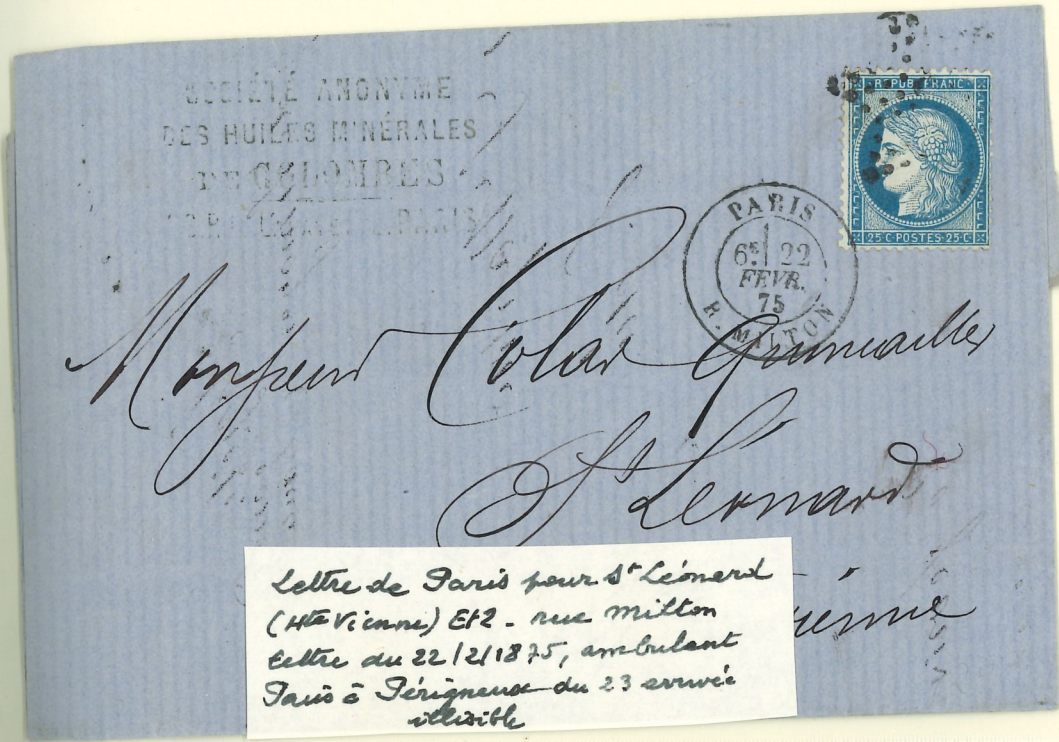 SOCIÉTÉ ANONYME
DES HUILES MINÉRALES
DE COLOMBES
PARIS
REPUB. FRANC.
25 C · POSTES · 25 C
PARIS
6E 22
FEVR.
75
R. MILTON
Monsieur Colas
St Léonard
Vienne
Lettre de Paris pour St Léonard
(Hte Vienne) Et2 - rue Milton
lettre du 22/2/1875, ambulant
Paris à Périgueux du 23 arrivée
illisible